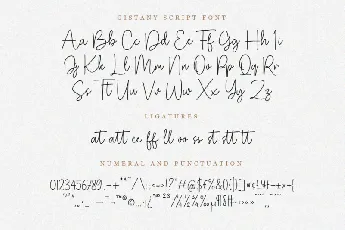 GISTANY SCRIPT FONT
Aa Bb Cc Dd Ee Ff Gg Hh Ii
Jj Kk Ll Mm Nn Oo Pp Qq Rr
Ss Tt Uu Vv Ww Xx Yy Zz
LIGATURES
at att ee ff ll oo ss st stt tt
NUMERAL AND PUNCTUATION
0123456789